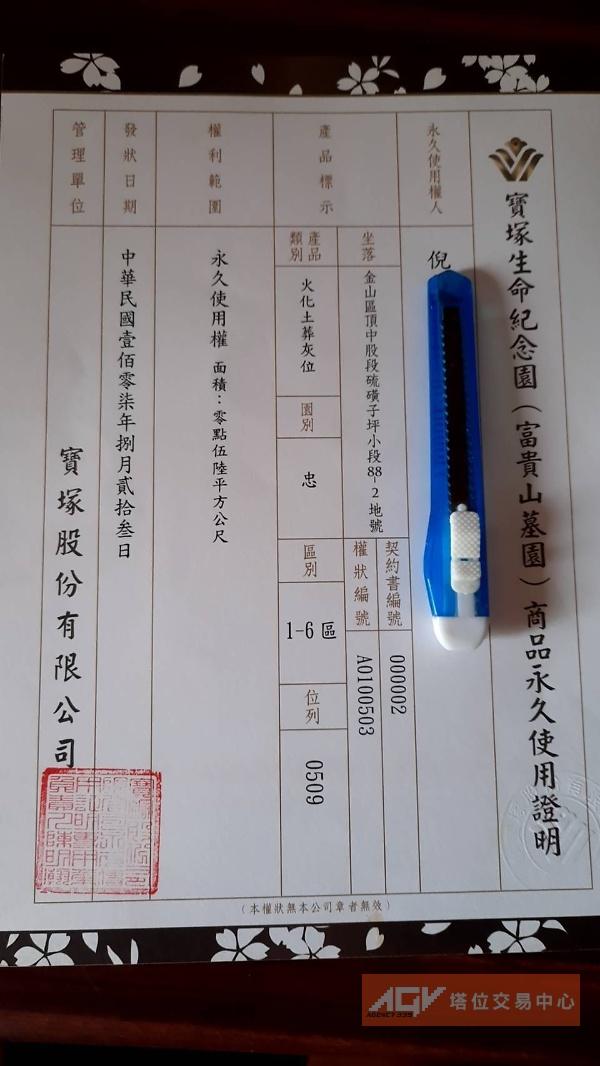 寶塚生命紀念園(富貴山墓園)商品永久使用證明
永久使用權人
倪
產品標示
坐落
金山區頂中股段硫磺子坪小段88-2地號
契約書編號
000002
權狀編號
A0100503
產品類別
火化土葬灰位
園別
忠
區別
1-6區
位列
0509
權利範圍
永久使用權 面積：零點伍陸平方公尺
發狀日期
中華民國壹佰零柒年捌月貳拾叁日
管理單位
寶塚股份有限公司
(本權狀無本公司章者無效)
AGV 塔位交易中心
AGENCY 339